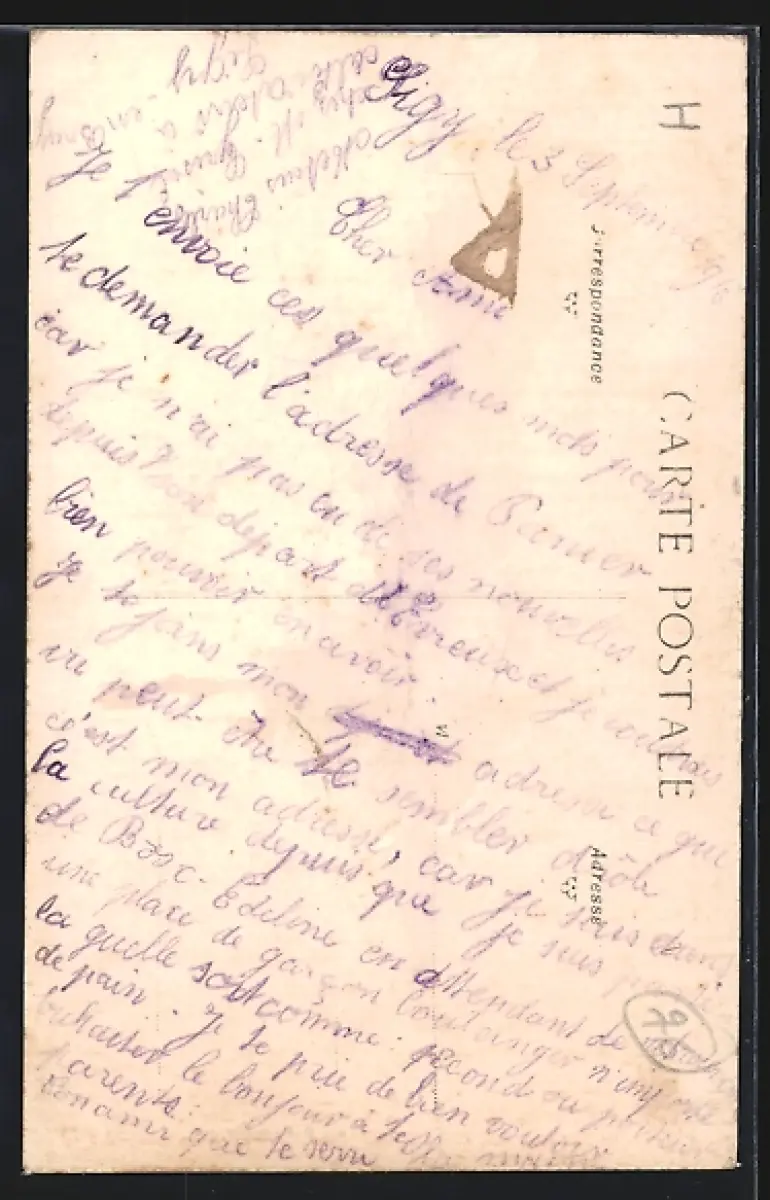 Sigy, le 3 Septembre 1916
Cher Ami
Je t'envoie ces quelques mots pour
te demander l'adresse de Panier
car je n'ai pas eu de ses nouvelles
depuis son départ d'Evreux et je voudrais
bien pouvoir en avoir.
Je te joins mon adresse ce qui
va peut être te sembler drôle
c'est mon adresse, car je suis dans
la culture depuis que je suis
de Bosc-Edeline en attendant de
une place de garçon boulanger n'importe
la quelle soit comme second ou
de pain. Je te prie de bien vouloir
souhaiter le bonjour à tes
parents.
Ton ami que te serre
chez M.
à
Sigy-en-Bray
CARTE POSTALE
Correspondance
Adresse
H
M